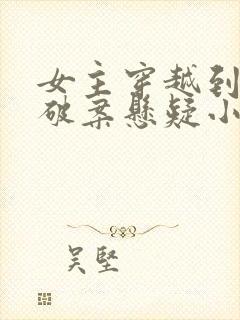 女主穿越到
破案悬疑小
吴坚